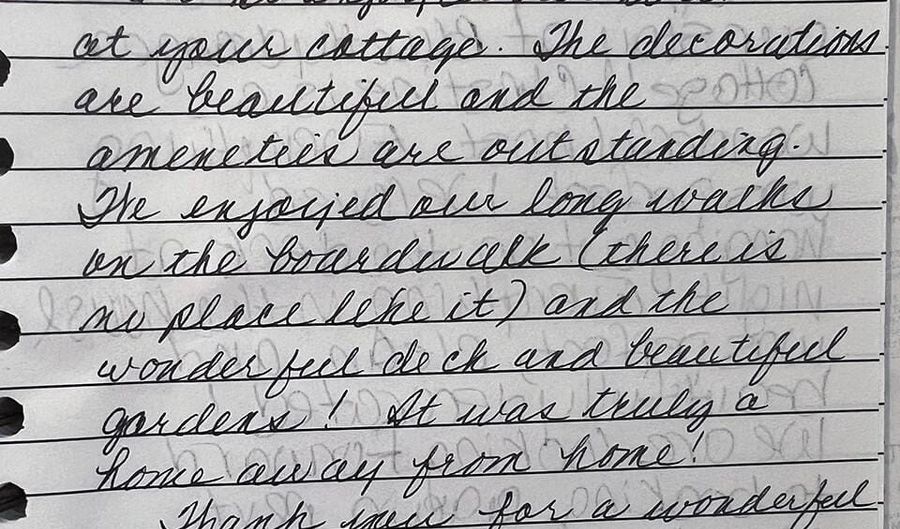 at your cottage. The decorations
are beautiful and the
ameneties are outstanding.
We enjoyed our long walks
on the boardwalk (there is
no place like it) and the
wonderful deck and beautiful
gardens! It was truly a
home away from home!
Thank you for a wonderful